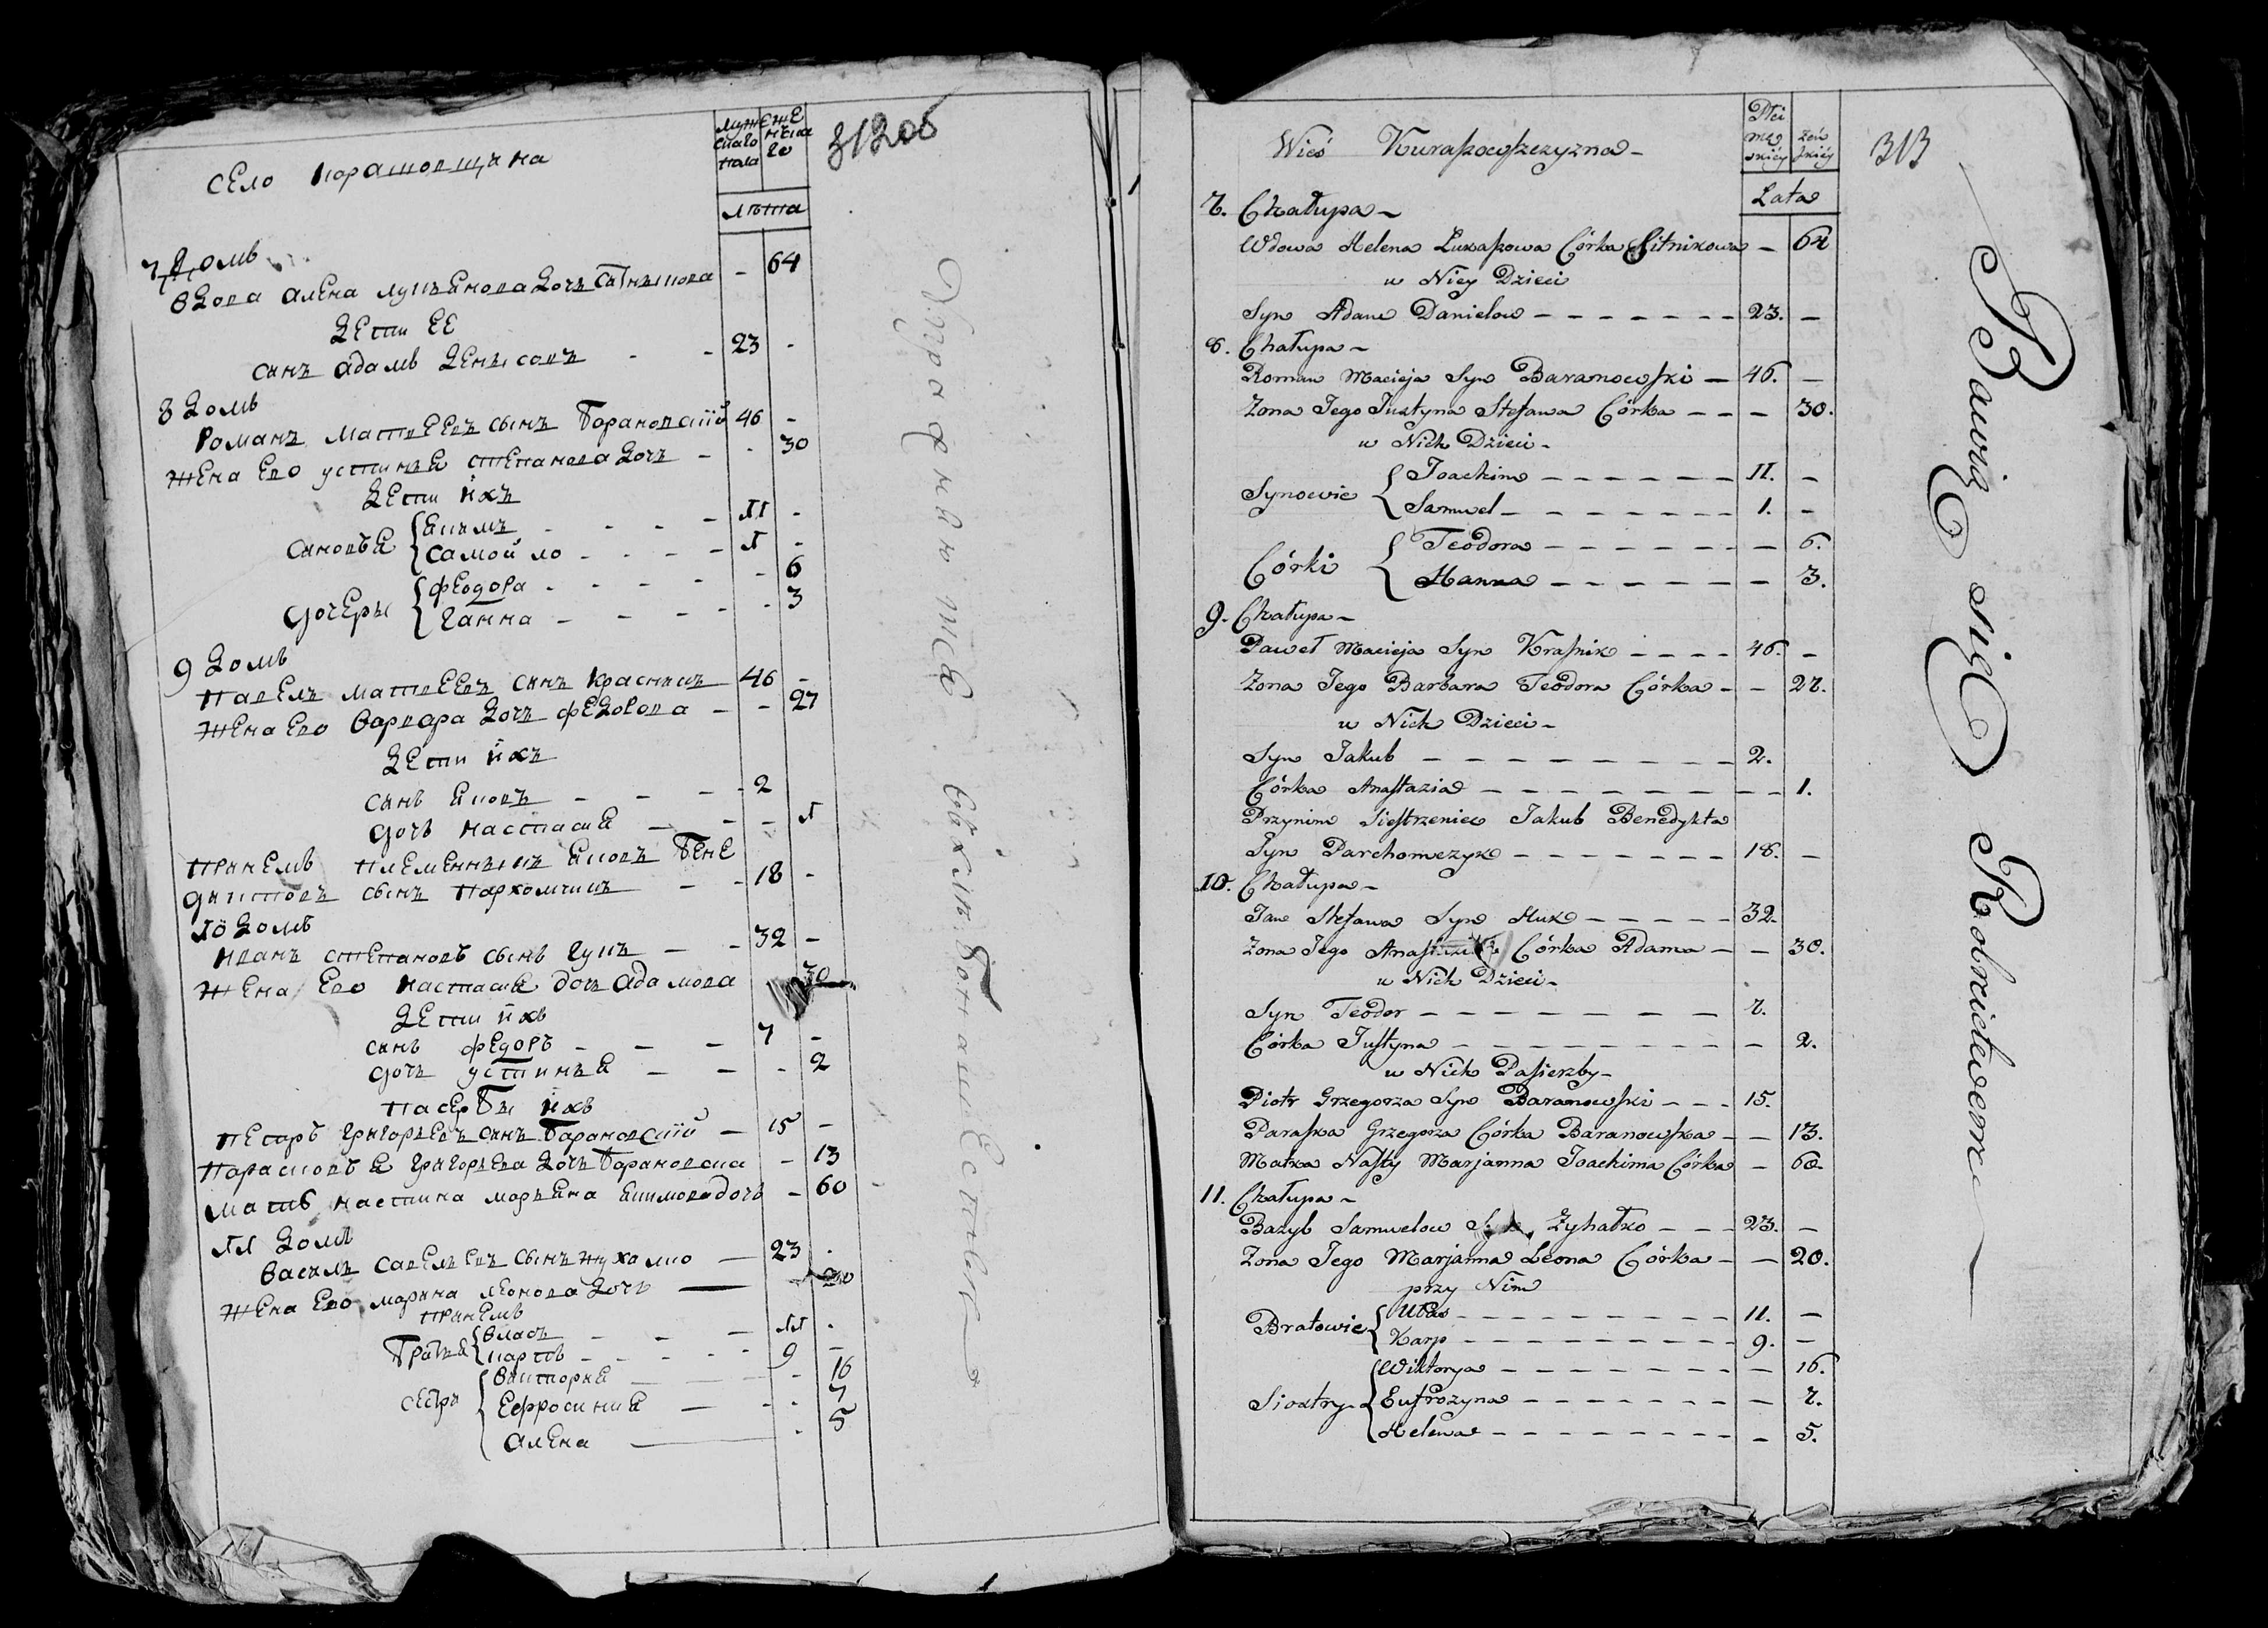 село карашовщина
мужескаго пола
женьскаго
лѣта
312об
7 Домъ
вдова алена лукъянова дочъ сытникова - 64
дети ее
синъ адамъ денисовъ - - 23 -
8 домъ
Романъ матвеевъ сынъ барановскій 46 -
жена ево устинья степанова дочъ - - 30
дети ихъ
синовья
якимъ - - - - 11 -
самойло - - - - 1 -
дочеры
феодора - - - - - 6
ганна - - - - - 3
9 домъ
павелъ матвеевъ синъ красникъ 46 -
жена ево варвара дочъ федорова - - 27
дети ихъ
синъ яковъ - - - 2
дочъ настасия - - - 1
приемъ племенникъ яковъ бене
диктовъ сынъ пархомчикъ - - 18 -
10 домъ
иванъ степановъ сынъ гукъ - - 32 -
жена ево настасия дочъ адамова 30
дети ихъ
синъ федоръ - - - 7 -
дочъ устинья - - - 2
пасербы ихъ
петръ григорьевъ синъ барановский - 15 -
парасковья григорьева дочъ барановска - 13
мать настина марьяна якимова дочъ - 60
11 домъ
василь савельевъ сынъ жухалко - 23 .
жена ево марина леонова дочъ - 20
приемъ
братья
власъ - - - 11 .
карпъ - - - - 9 -
сестры
виктория - - - 16
ефросиния - - - 7
алена - - 5
Упражняюже
ся хлѣбопашествомъ
Wieś Kuraszowszczyzna -
Płci męskiéy
żeńskiéy
Lata
313
7. Chałupa -
Wdowa Helena Łukaszowa Córka Sitnikowa - 64
u Niey Dzieci
Syn Adam Danielow - - - - - - - 23. -
8. Chałupa -
Roman Macieja Syn Baranowski - 46. -
Żona Jego Justyna Stefana Córka - - - 30.
u Nich Dzieci -
Synowie
Joachim - - - - - - 11. -
Samuel - - - - - - - 1. -
Córki
Teodora - - - - - - - 6.
Hanna - - - - - - - 3.
9. Chałupa -
Paweł Macieja Syn Krasnik - - - - 46. -
Żona Jego Barbara Teodora Córka - - 27.
u Nich Dzieci -
Syn Jakub - - - - - - - - - 2.
Córka Anastazia - - - - - - - - - 1.
Przyjm Siestrzeniec Jakub Benedykta
Syn Parchomczyk - - - - - - - 18. -
10. Chałupa -
Jan Stefana Syn Huk - - - - - 32.
Żona Jego Córka Adama - - 30.
u Nich Dzieci -
Syn Teodor - - - - - - - 7.
Córka Justyna - - - - - - - - - 2.
u Nich Pasierzby -
Piotr Grzegorza Syn Baranowski - - - 15.
Paraska Grzegorza Córka Baranowska - - 13.
Matka Nasty Marjanna Joachima Córka - 60.
11. Chałupa -
Bazyl Samuelow Żyhałko - - - 23. -
Żona Jego Marjanna Leona Córka - - 20.
przy Nim
Bratowie
Ułas - - - - - - - - - 11. -
Karp - - - - - - - - - 9. -
Siostry
Wiktorya - - - - - - - - 16.
Eufrozyna - - - - - - - - 7.
Helena - - - - - - - - - 5.
Bawią się Rolnictwem